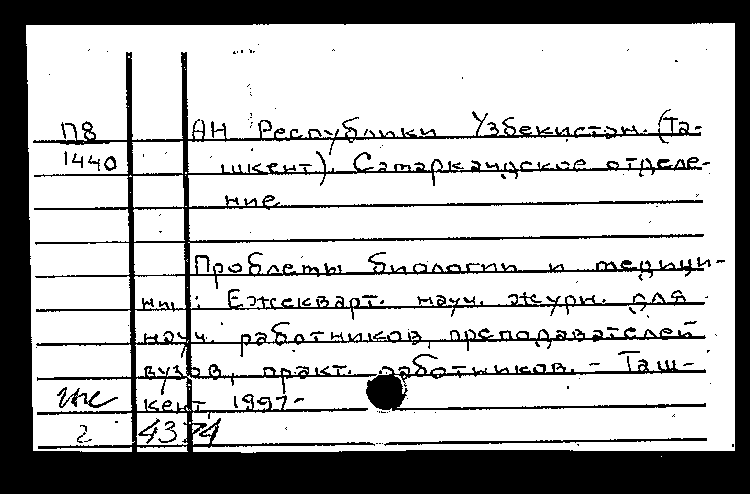 П8 АН Республики Узбекистан. (Та-
1440 шкент). Самаркандское отделе-
ние
Проблемы биологии и медици-
ны: Ежекварт. науч. журн. для
науч. работников, преподавателей
вузов, практ. работников. - Таш-
кент, 1997-
2 4374